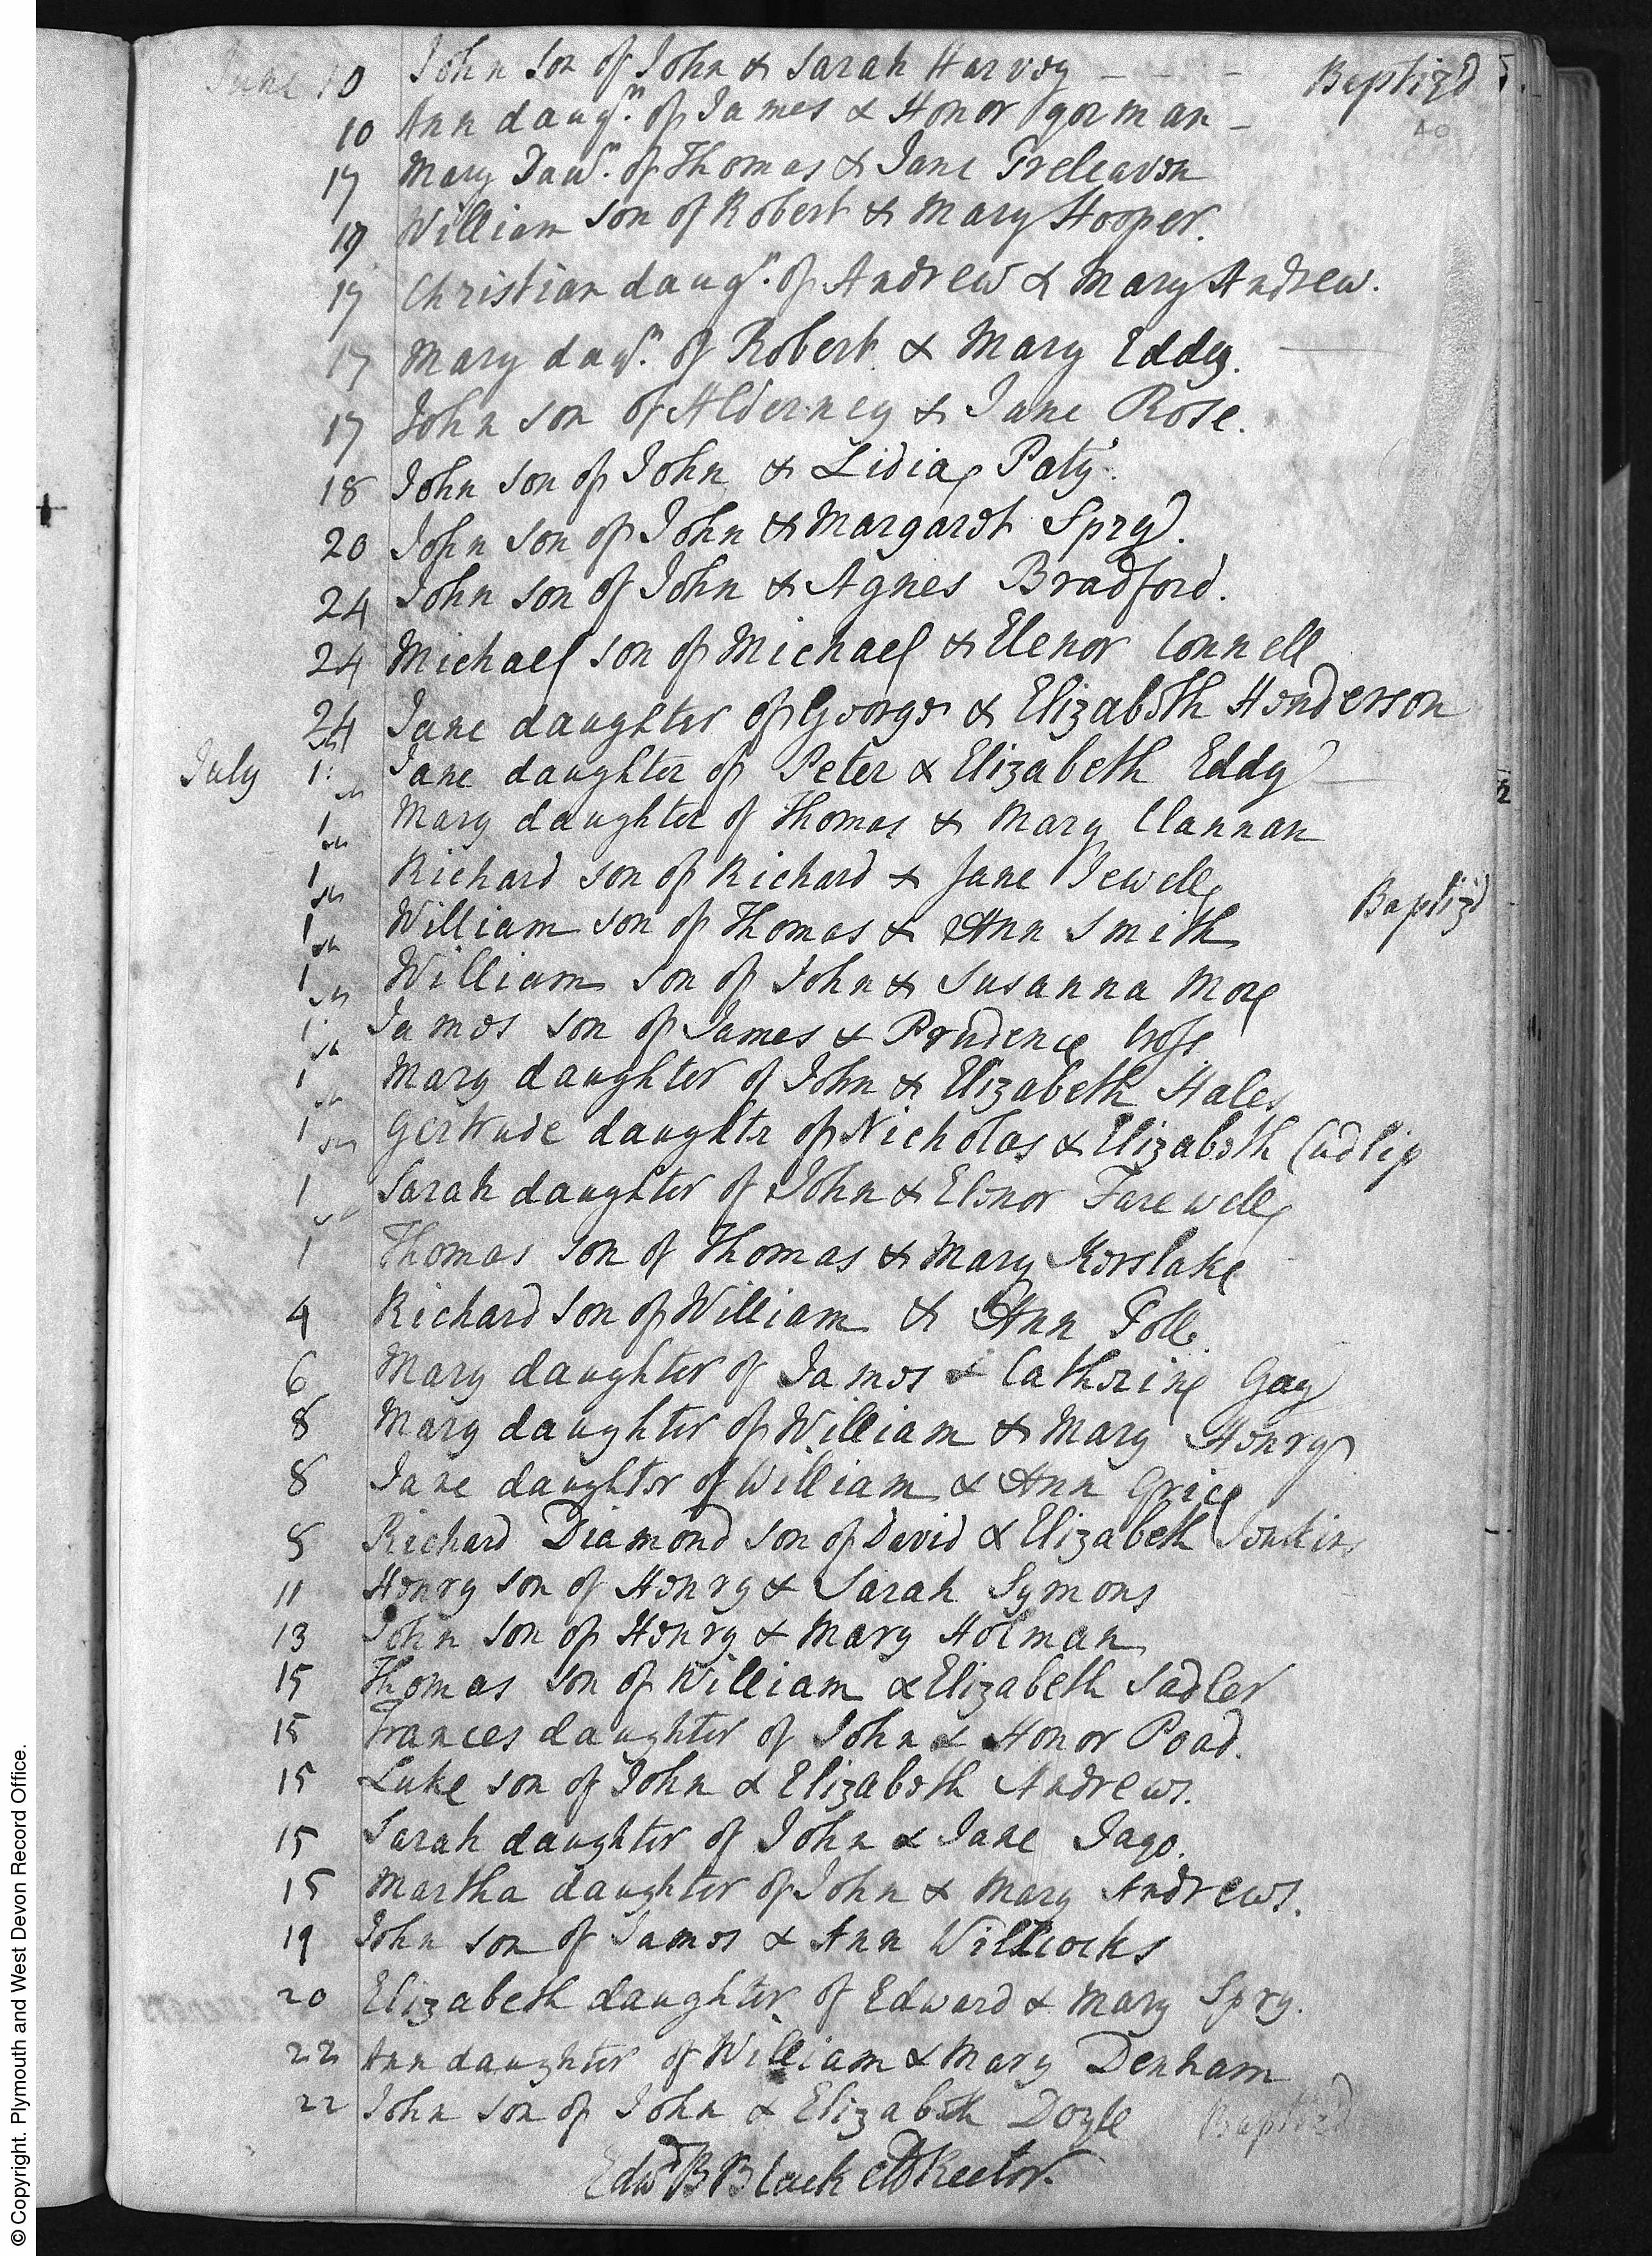 June 10 John son of John & Sarah Harvey - - - Baptiz'd
10 Ann daugr. of James & Honor gorman -
17 Mary Daur. of Thomas & Jane Treleaven
17 William son of Robert & Mary Hooper.
17 Christian daugr. of Andrew & Mary Andrew.
17 Mary daur. of Robert & Mary Eddy.
17 John son of Alderney & Jane Rose.
18 John son of John & Lidia Paty.
20 John son of John & Margaret Spry.
24 John son of John & Agnes Bradford.
24 Michael son of Michael & Elenor Connell
24 Jane daughter of George & Elizabeth Henderson
July 1 Jane daughter of Peter & Elizabeth Eddy
1 Mary daughter of Thomas & Mary Clannan
1 Richard son of Richard & Jane Jewell
1 William son of Thomas & Ann Smith Baptiz'd
1 William son of John & Susanna More
1 James son of James & Prudence Cross
1 Mary daughter of John & Elizabeth Hales
1 Gertrude daughtr of Nicholas & Elizabeth Cudlip
1 Sarah daughter of John & Elenor Farewell
1 Thomas son of Thomas & Mary Kerslake
4 Richard son of William & Ann
6 Mary daughter of James & Catherine Gay
8 Mary daughter of William & Mary Henry
8 Jane daughter of William & Ann Grice
8 Richard Diamond son of David & Elizabeth
11 Henry son of Henry & Sarah Symons
13 John son of Henry & Mary Holman
15 Thomas son of William & Elizabeth Sadler
15 Frances daughter of John & Honor Poad.
15 Luke son of John & Elizabeth Andrews.
15 Sarah daughter of John & Jane Jago.
15 Martha daughter of John & Mary Andrews.
19 John son of James & Ann Willcocks
20 Elizabeth daughter of Edward & Mary Spry.
22 Ann daughter of William & Mary Denham
22 John son of John & Elizabeth Doyle Baptizd
Edwd B Blackett Rector.
© Copyright. Plymouth and West Devon Record Office.